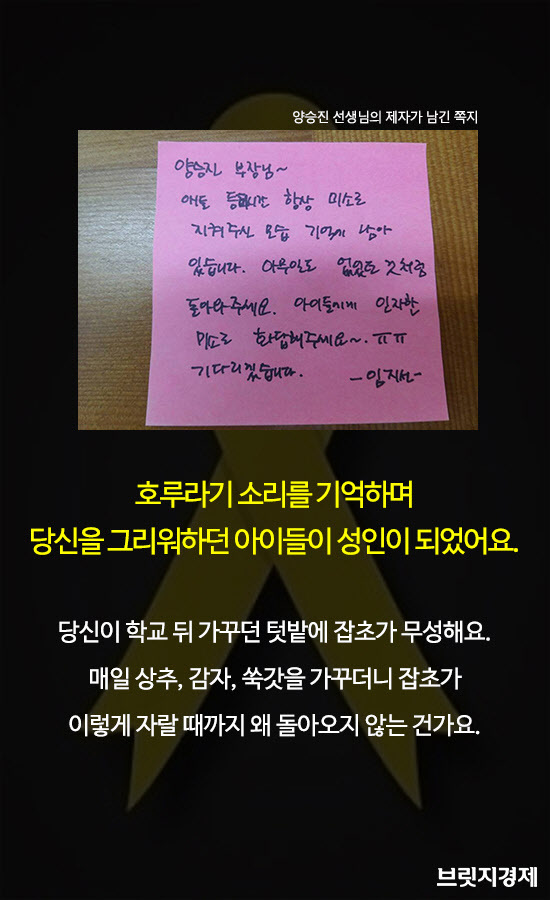 양승진 선생님의 제자가 남긴 쪽지
양승진 부장님~
애토 등교시간 항상 미소로
지켜주신 모습 기억에 남아
있습니다. 아무일도 없었던 것처럼
돌아와주세요. 아이들에게 인자한
미소로 화답해주세요~. ㅠㅠ
기다리겠습니다. -임지선-
호루라기 소리를 기억하며
당신을 그리워하던 아이들이 성인이 되었어요.
당신이 학교 뒤 가꾸던 텃밭에 잡초가 무성해요.
매일 상추, 감자, 쑥갓을 가꾸더니 잡초가
이렇게 자랄 때까지 왜 돌아오지 않는 건가요.
브릿지경제